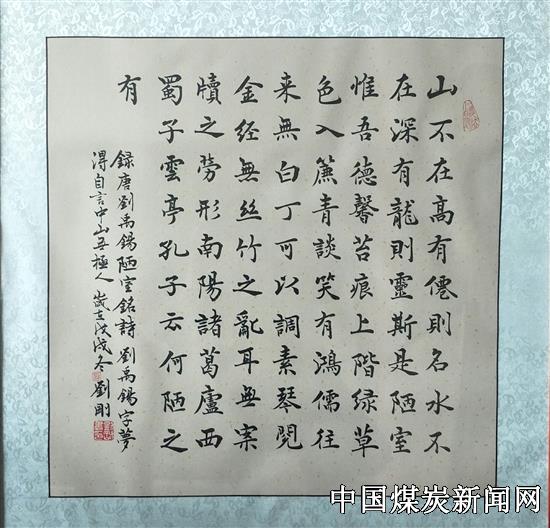 山不在高有僊則名水不
在深有龍則靈斯是陋室
惟吾德馨苔痕上階绿草
色入簾青談笑有鴻儒往
来無白丁可以調素琴閲
金经無丝竹之亂耳無案
牘之勞形南陽諸葛廬西
蜀子雲亭孔子云何陋之
有
録唐劉禹錫陋室銘詩劉禹錫字夢
得自言中山無極人歲在戊戌冬劉剛
中国煤炭新闻网